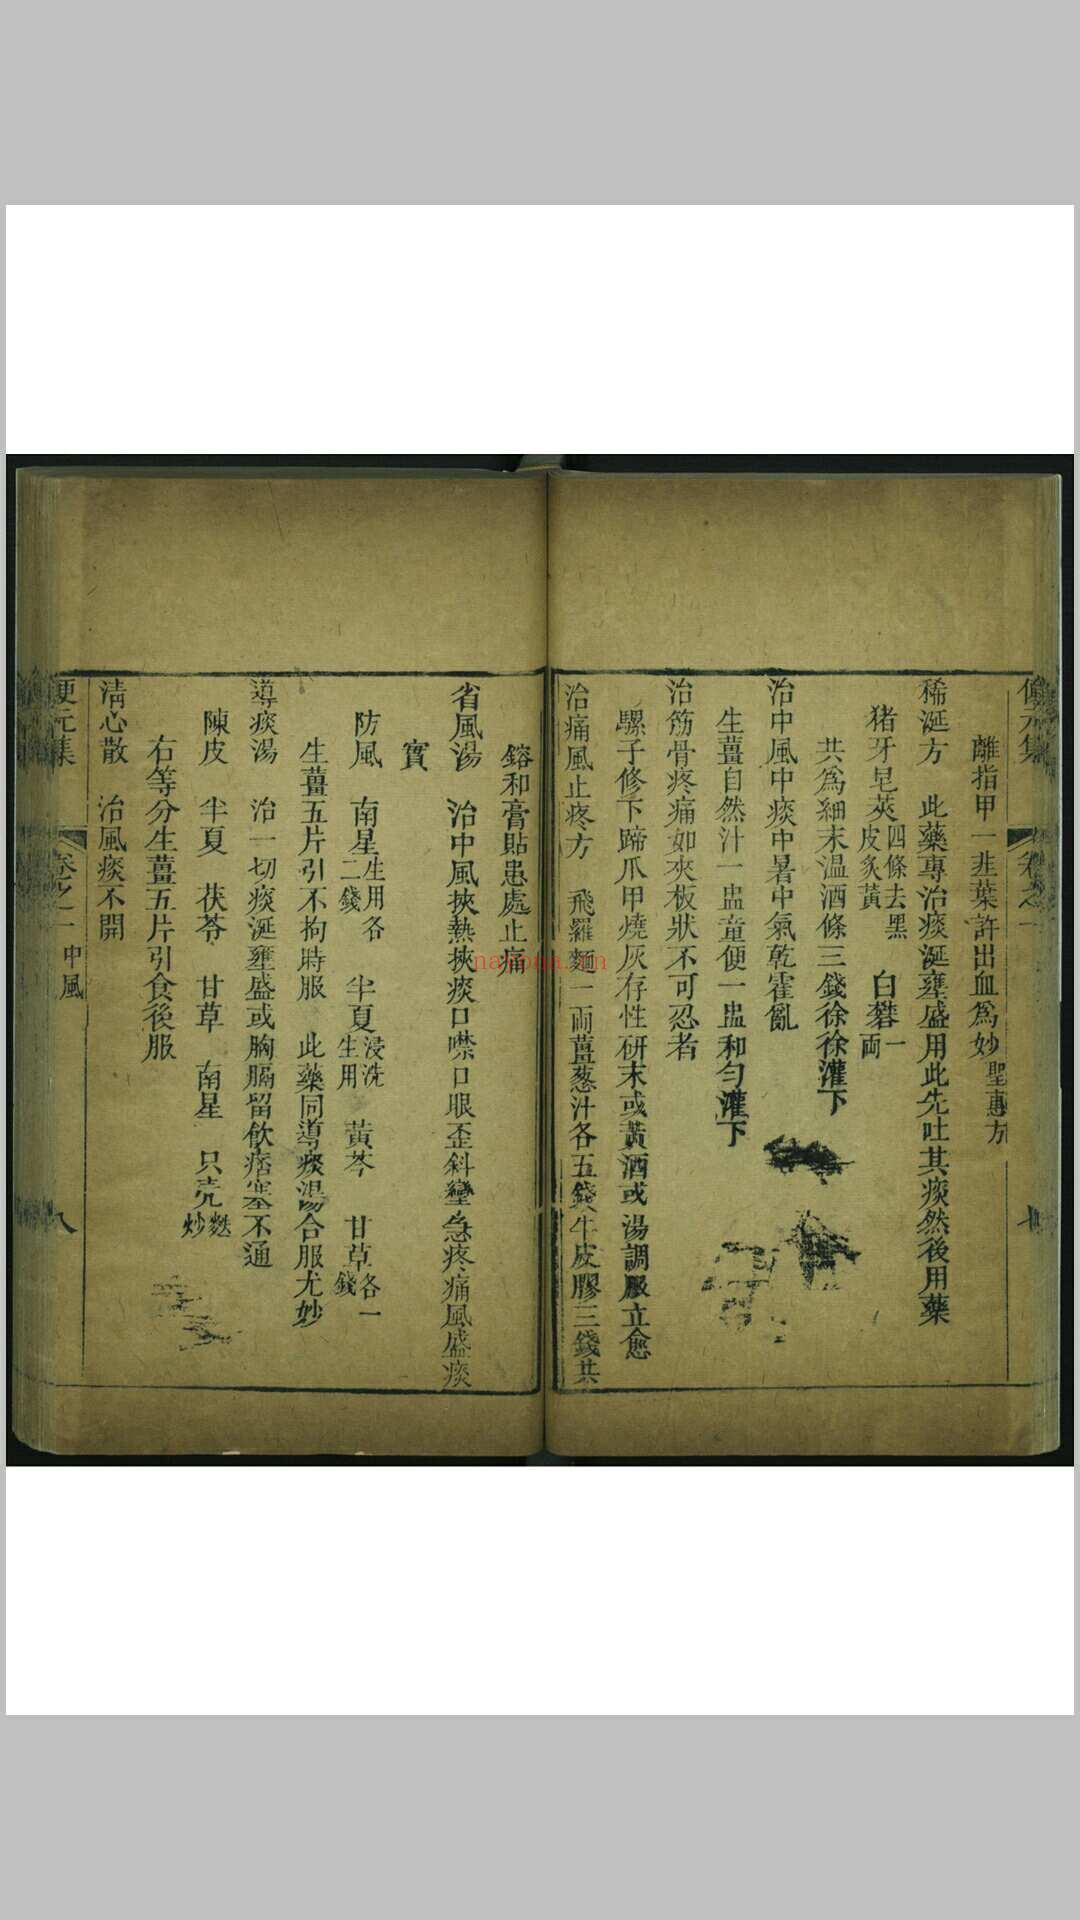 集
卷之一
離指甲一韭葉許出血爲妙聖惠方
稀涎方 此藥專治痰涎壅盛用此先吐其痰然後用藥
猪牙皂莢四條去黑皮炙黃 白礬一兩
共爲細末温酒條三錢徐徐灌下
治中風中痰中暑中氣乾霍亂
生薑自然汁一盅童便一盅和勻灌下
治筋骨疼痛如夾板狀不可忍者
騾子修下蹄爪甲燒灰存性研末或黃酒或湯調服立愈
治痛風止疼方 飛羅麵一兩薑葱汁各五錢牛皮膠三錢共
鎔和膏貼患處止痛
省風湯 治中風挾熱挾痰口噤口眼歪斜攣急疼痛風盛痰
實
防風 南星生用各二錢 半夏浸洗生用 黃芩 甘草各一錢
生薑五片引不拘時服 此藥同導痰湯合服尤妙
導痰湯 治一切痰涎壅盛或胸膈留飲痞塞不通
陳皮 半夏 茯苓 甘草 南星 只壳麩炒
右等分生薑五片引食後服
清心散 治風痰不開
便元集
卷之一 中風
八
nayona.cn